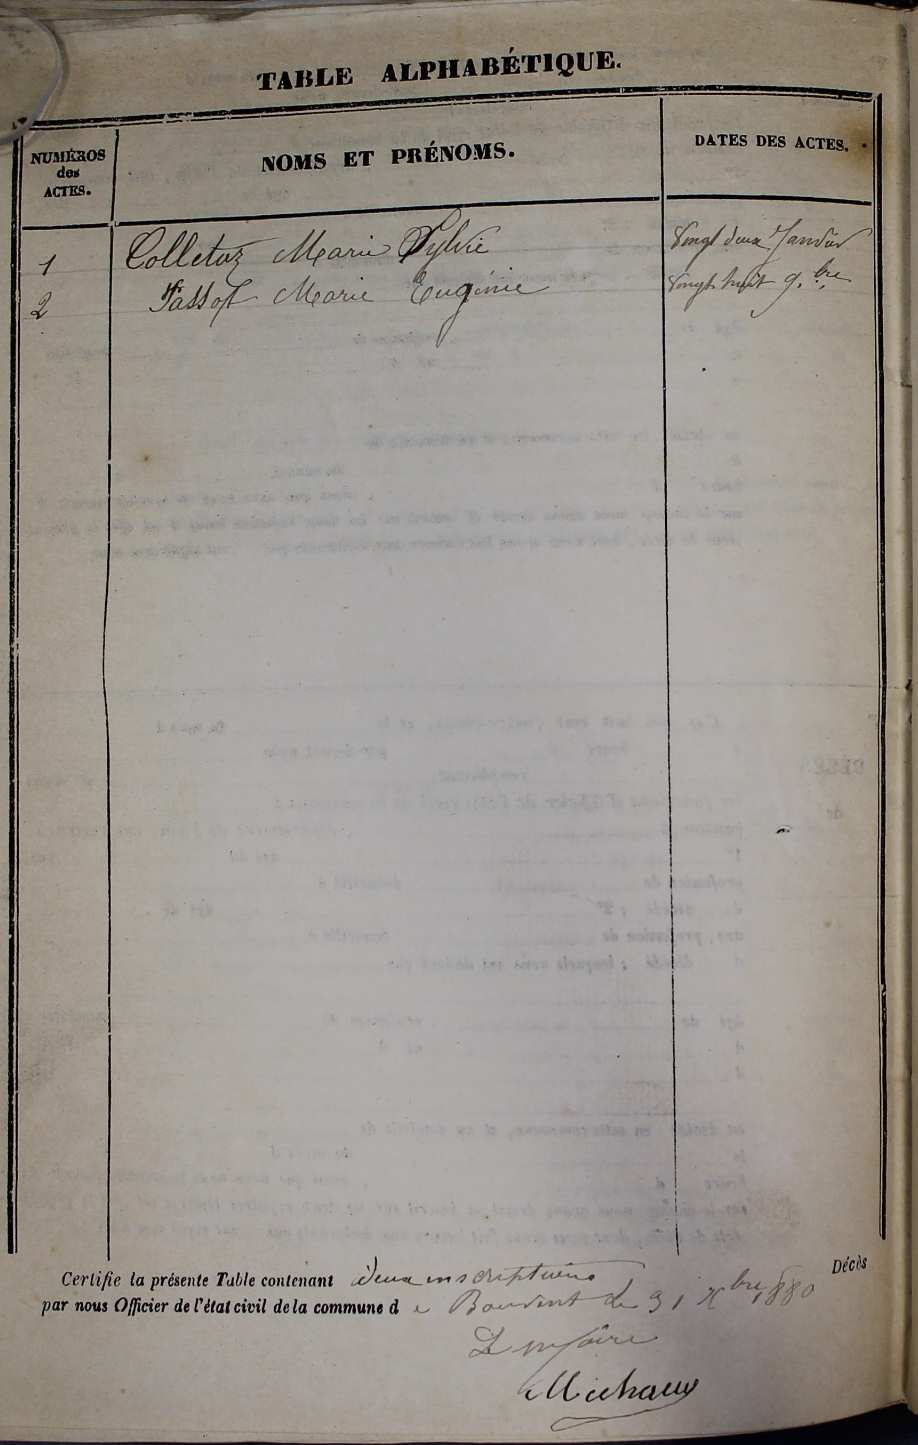 TABLE ALPHABÉTIQUE.
NUMÉROS
des
ACTES.
NOMS ET PRÉNOMS.
DATES DES ACTES.
1 Colletaz Marie Sylvie Vingt deux Janvier
2 Passot Marie Eugénie Vingt huit 9.bre
Décès
Certifie la présente Table contenant deux inscriptions
par nous Officier de l'état civil de la commune d e le 31 Xbre 1880
Le maire
Michaux